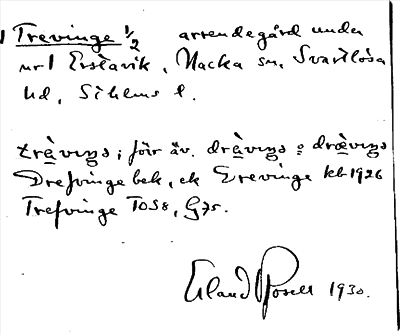 Trevinge ½ arrendegård under
nr 1 Erstavik, Nacka sn, Svartlösa
hd, Sthlms l.
trä̀vıŋə; förr äv. drä̀vıŋə o dræ̀vıŋə
Drefvinge bek, ek Erevinge kb 1926
Trefvinge TOS8, G75.
Erland Rosell 1930.